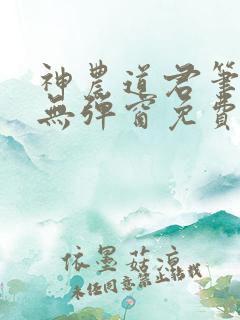 神農道君筆
無彈窗免費
依墨菇涼
未經同意禁止轉載